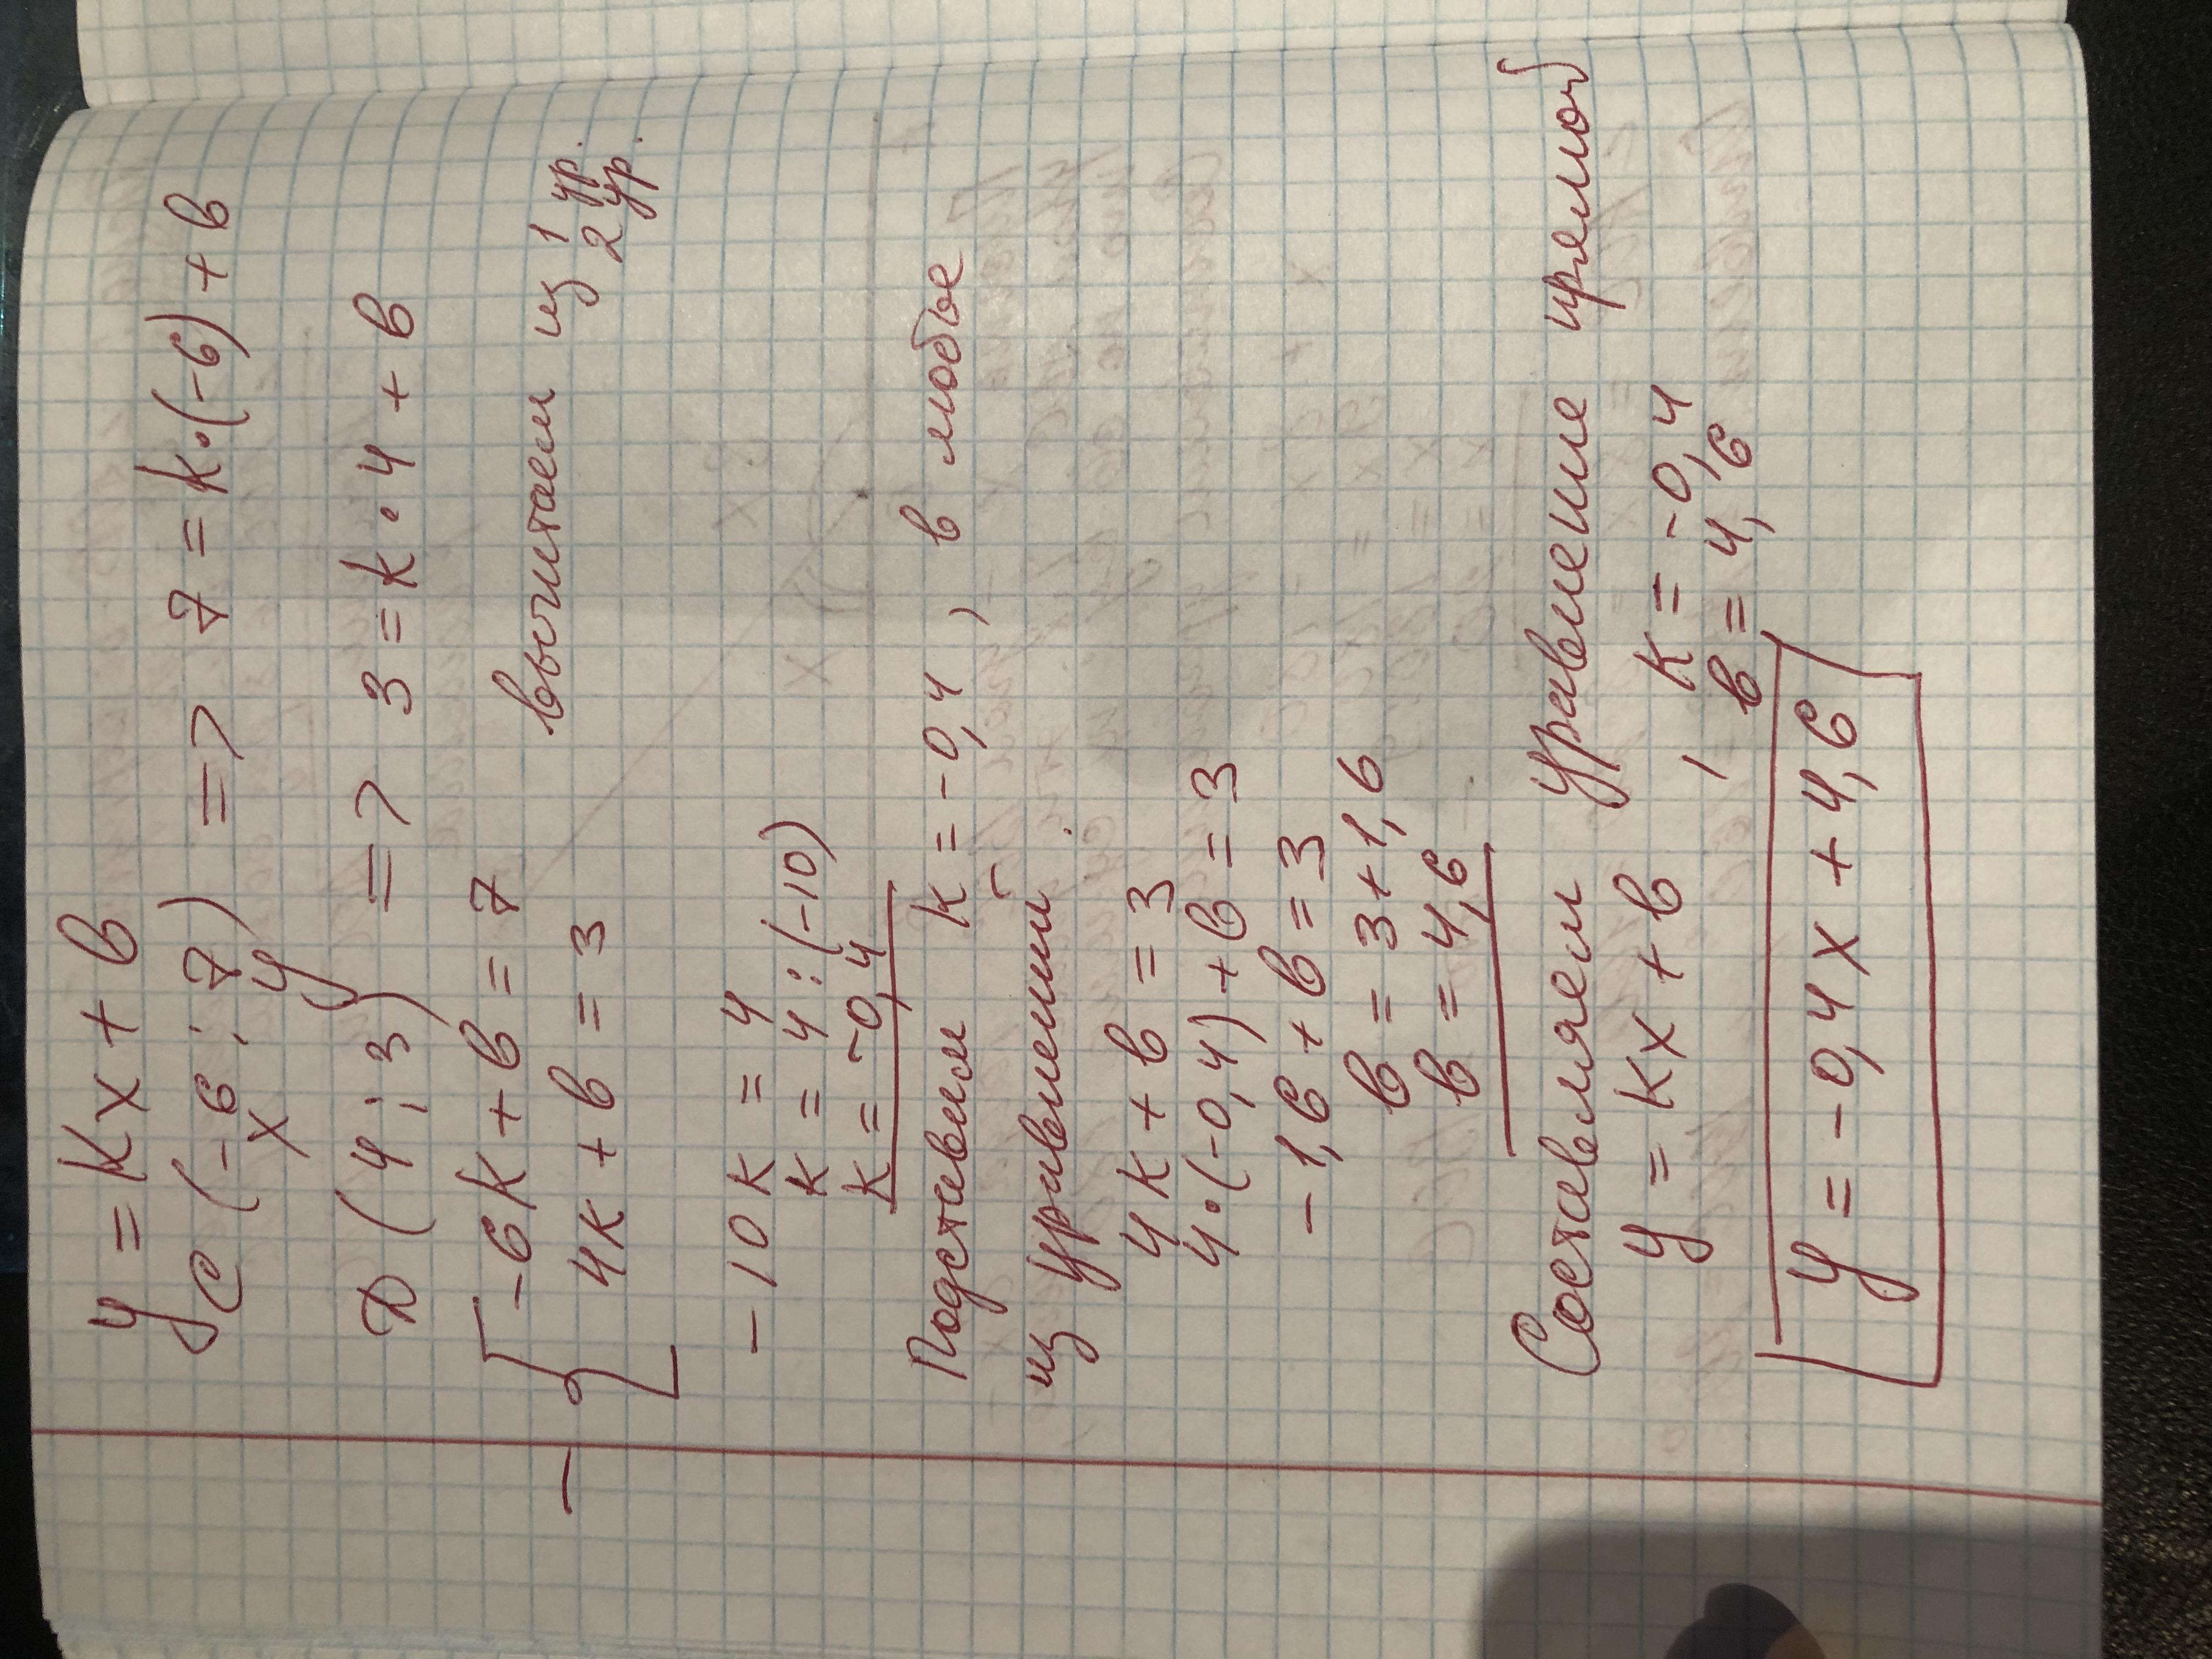 y = kx + b
C (-6 ; 7) => 7 = k·(-6) + b
x y
D (4 ; 3) => 3 = k · 4 + b
-6k + b = 7
вычитаем из 1 ур.
2 ур.
- { 4k + b = 3
-10k = 4
k = 4 : (-10)
k = -0,4
Подставим k = -0,4 , в любое
из уравнений.
4k + b = 3
4·(-0,4) + b = 3
-1,6 + b = 3
b = 3 + 1,6
b = 4,6
Составляем уравнение прямой
y = kx + b , k = -0,4
b = 4,6
y = -0,4x + 4,6